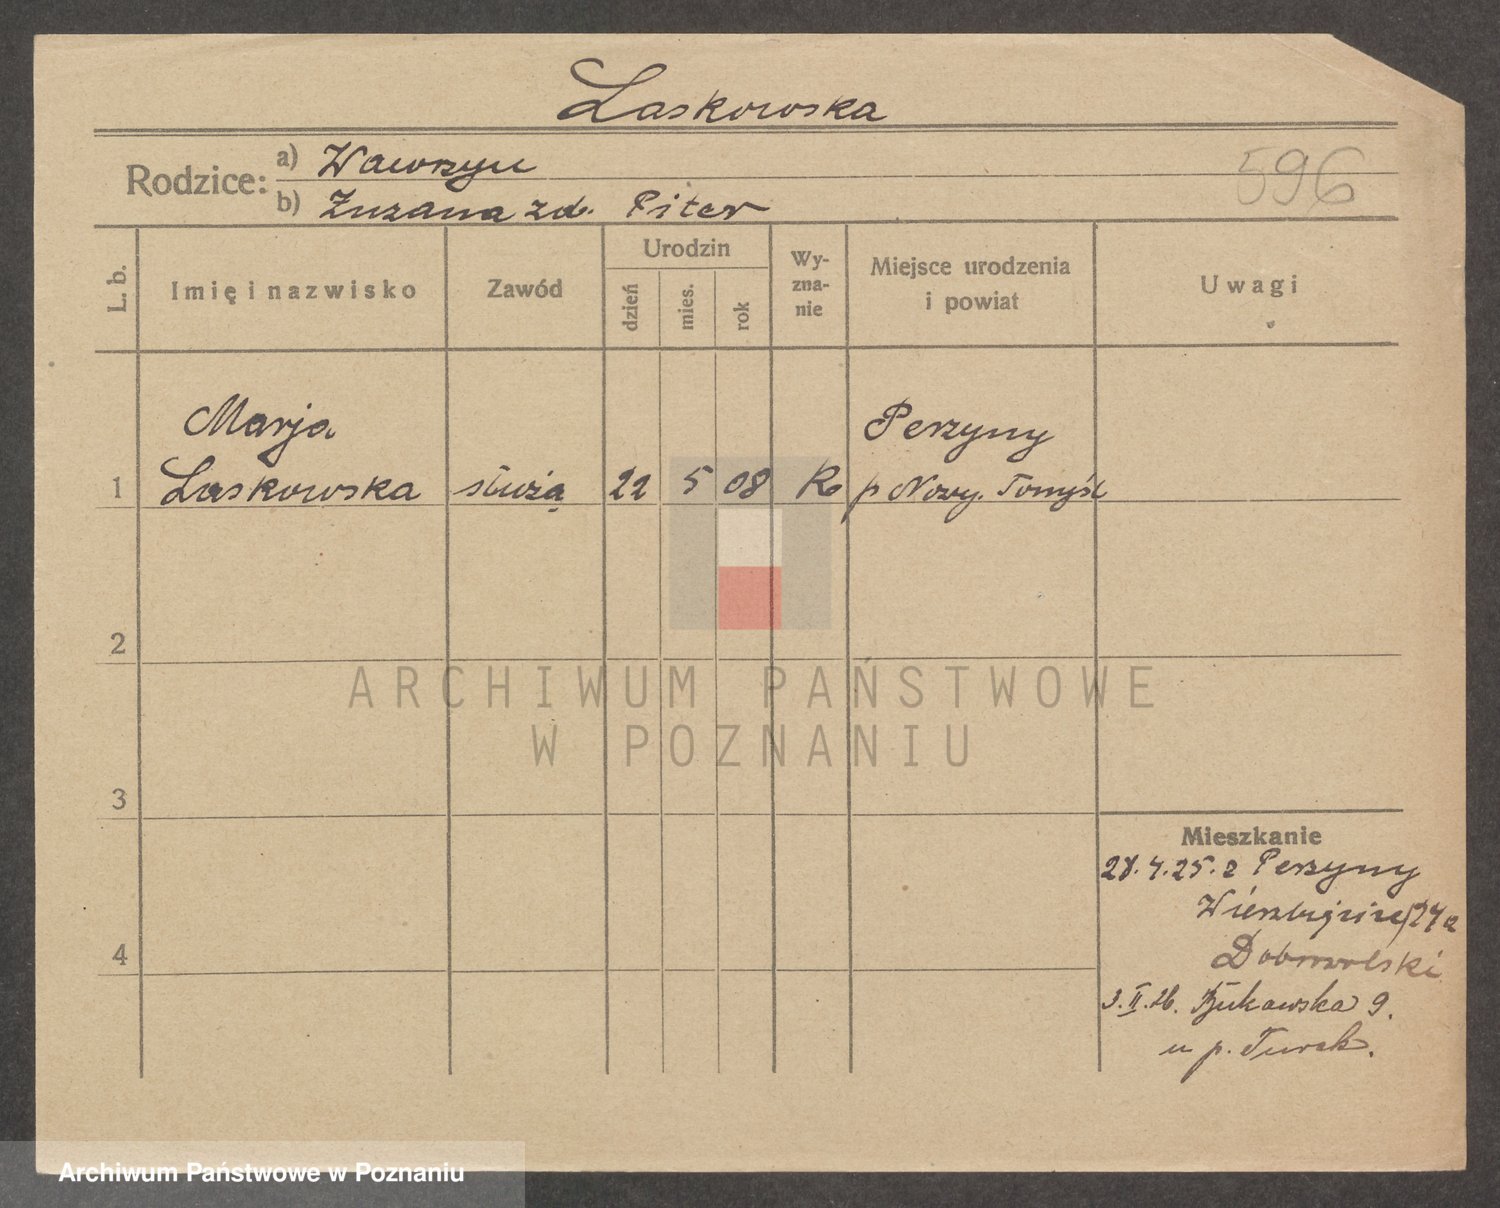 Laskowska
Rodzice: a) Wawrzyn
b) Zuzana zd. Piter
596
L. b.
Imię i nazwisko
Zawód
Urodzin
dzień
mies.
rok
Wy-
zna-
nie
Miejsce urodzenia
i powiat
Uwagi
Marja
Perzyny
1 Laskowska służą 22 5 08 R. p Nowy. Tomyśl
2
ARCHIWUM PAŃSTWOWE
W POZNANIU
3
Mieszkanie
28.4.25. z Perzyny
Wierzbięcice 24a
4
Dobrowolski
3.II.26. Bukowska 9.
u p. Turek.
Archiwum Państwowe w Poznaniu